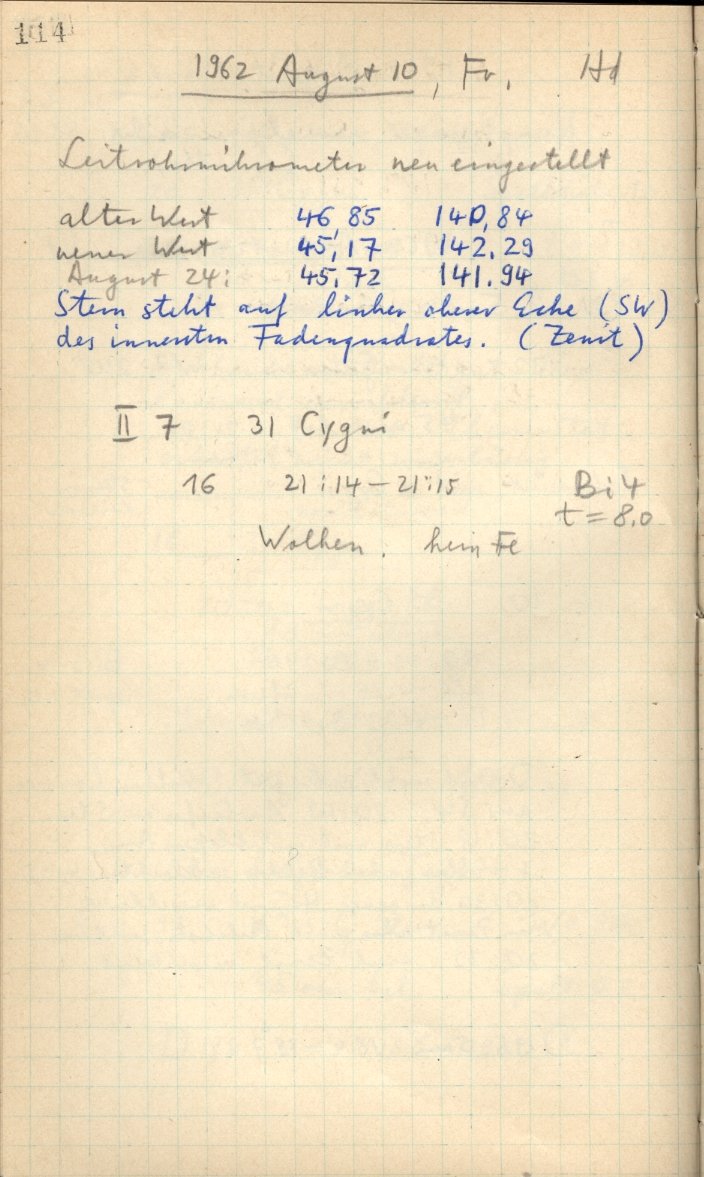 114
1962 August 10, Fr. Hd
Leitrohrmikrometer neu eingestellt
alter Wert 46,85 140,84
neuer Wert 45,17 142,29
August 24: 45,72 141.94
Stern steht auf linker oberer Ecke (SW)
des innersten Fadenquadrates. (Zenit)
II 7 31 Cygni
16 21:14 – 21:15 Bi 4
t = 8,0
Wolken. kein Fe